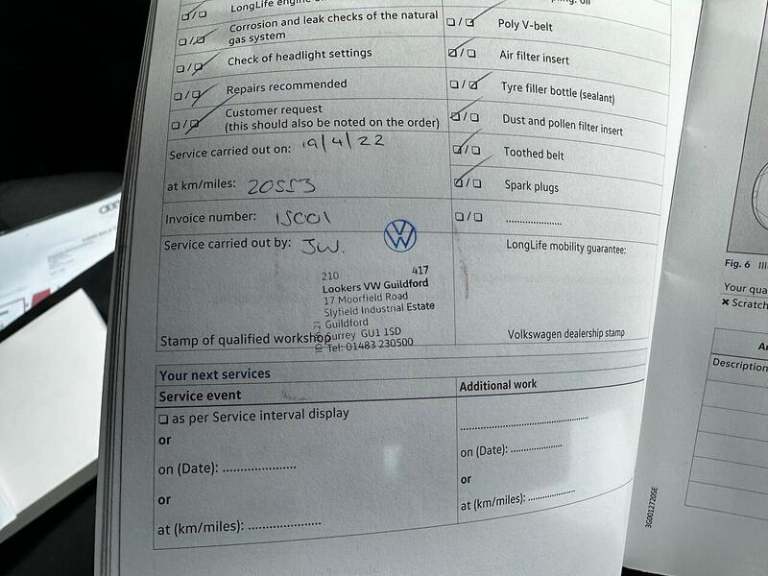 LongLife engine
☑/☐
Corrosion and leak checks of the natural
gas system
☐/☑
Check of headlight settings
☐/☑
Repairs recommended
☐/☑
Customer request
(this should also be noted on the order)
☐/☑
Service carried out on: 19/4/22
at km/miles: 20553
Invoice number: 15C01
Service carried out by: JW.
210 417
Lookers VW Guildford
17 Moorfield Road
Slyfield Industrial Estate
Guildford
Surrey GU1 1SD
Tel: 01483 230500
Stamp of qualified workshop
oil
☐/☑ Poly V-belt
☑/☐ Air filter insert
☐/☑ Tyre filler bottle (sealant)
☑/☐ Dust and pollen filter insert
☑/☐ Toothed belt
☑/☐ Spark plugs
☐/☐ ....................
LongLife mobility guarantee:
Volkswagen dealership stamp
Your next services
Service event
☐ as per Service interval display
or
on (Date): ....................
or
at (km/miles): ....................
Additional work
..................................
on (Date): ..............
or
at (km/miles): ..............
3G0012720SE
Fig. 6
Your qua
✖ Scratch
Description